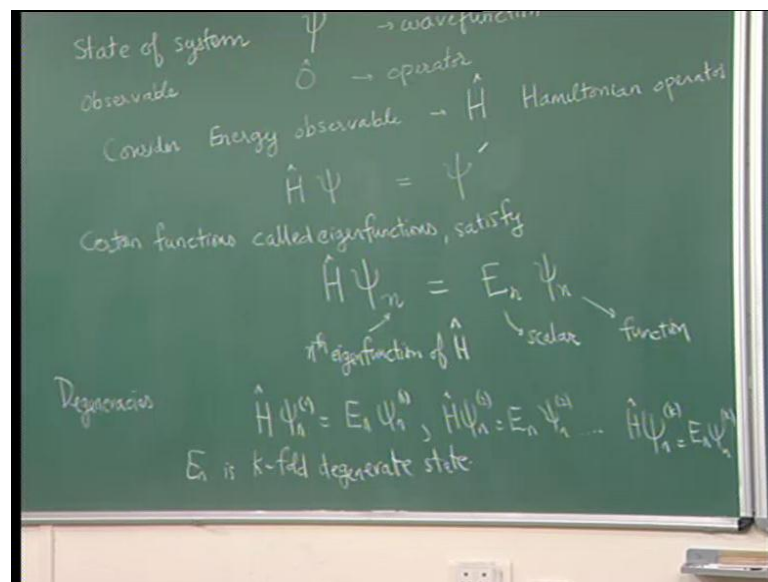 State of system ψ → wavefunction
Observable Ô → operator
Consider Energy observable → Ĥ Hamiltonian operator
Ĥ ψ = ψ′
Certain functions called eigenfunctions, satisfy
Ĥ ψₙ = Eₙ ψₙ
nᵗʰ eigenfunction of Ĥ scalar function
Degeneracies Ĥ ψₙ⁽¹⁾ = Eₙ ψₙ⁽¹⁾, Ĥψₙ⁽²⁾ = Eₙ ψₙ⁽²⁾ ... Ĥψₙ⁽ᵏ⁾ = Eₙψₙ⁽ᵏ⁾
Eₙ is k-fold degenerate state.